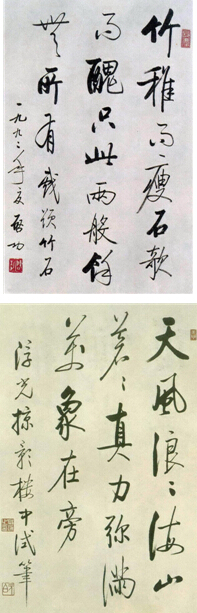 竹稚而瘦石
而醜只此兩般餘
無所有戲題竹石
一九九二年夏 啟功
天風浪〻海山
蒼〻真力彌滿
萬象在旁
浮光掠影樓中試筆